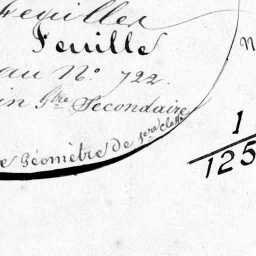 Feuilles
Feuille
au N° 722.
in Gre Secondaire
e Géomètre de 1ere Classe
N
1
125